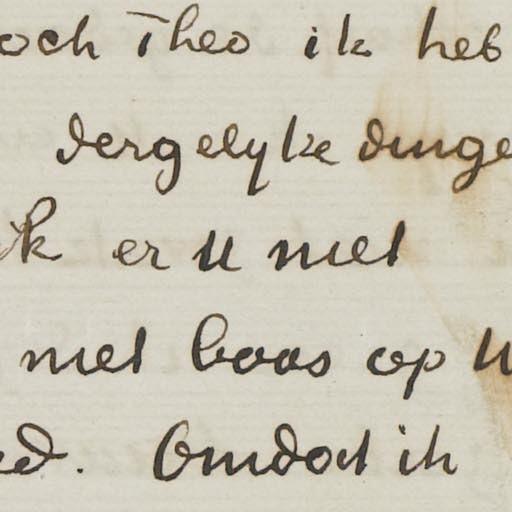 och Theo ik heb
dergelyke dinge
ik er U niet
niet boos op U
ed. Omdat ik